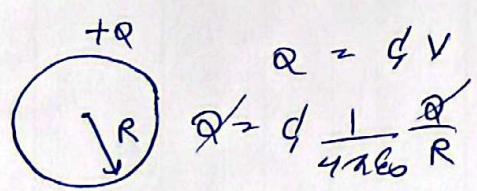 +Q
R
Q = C V
Q = C 1/4πε₀ Q/R